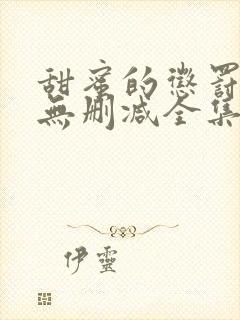 甜蜜的懲罰
無刪减全集
伊靈